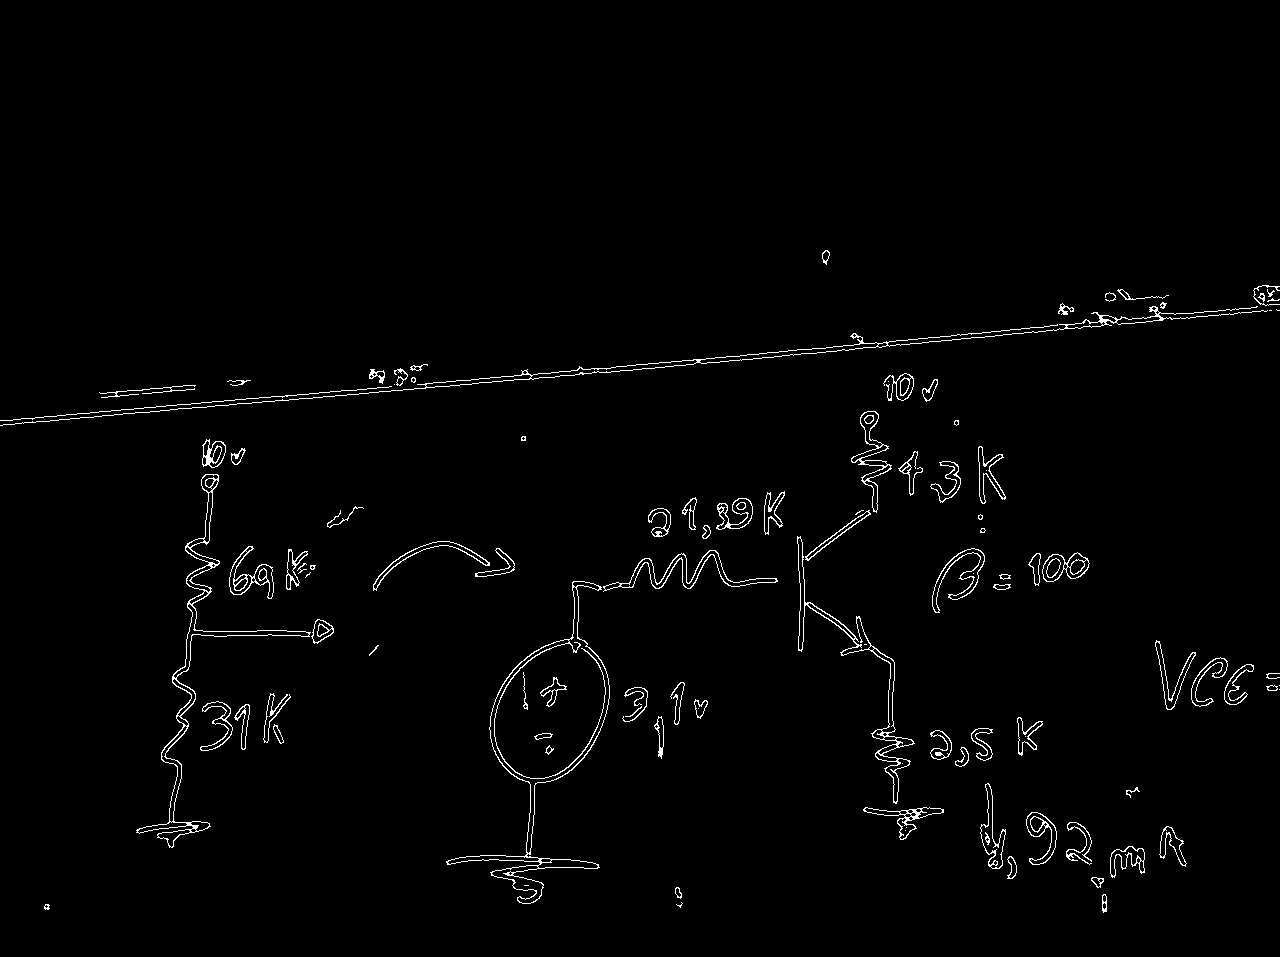 10v
69K
31K
21,39K
3,1v
10v
4,3K
β=100
2,5K
,92mA
VCE=